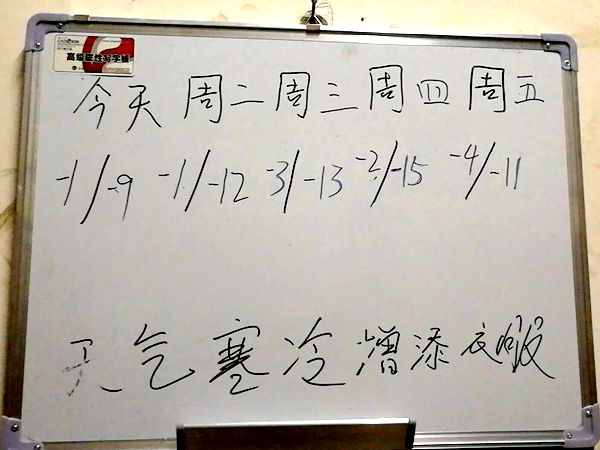 高级磁性写字板
今天 周二 周三 周四 周五
-1/-9 -1/-12 -3/-13 -2/-15 -4/-11
天气寒冷增添衣服